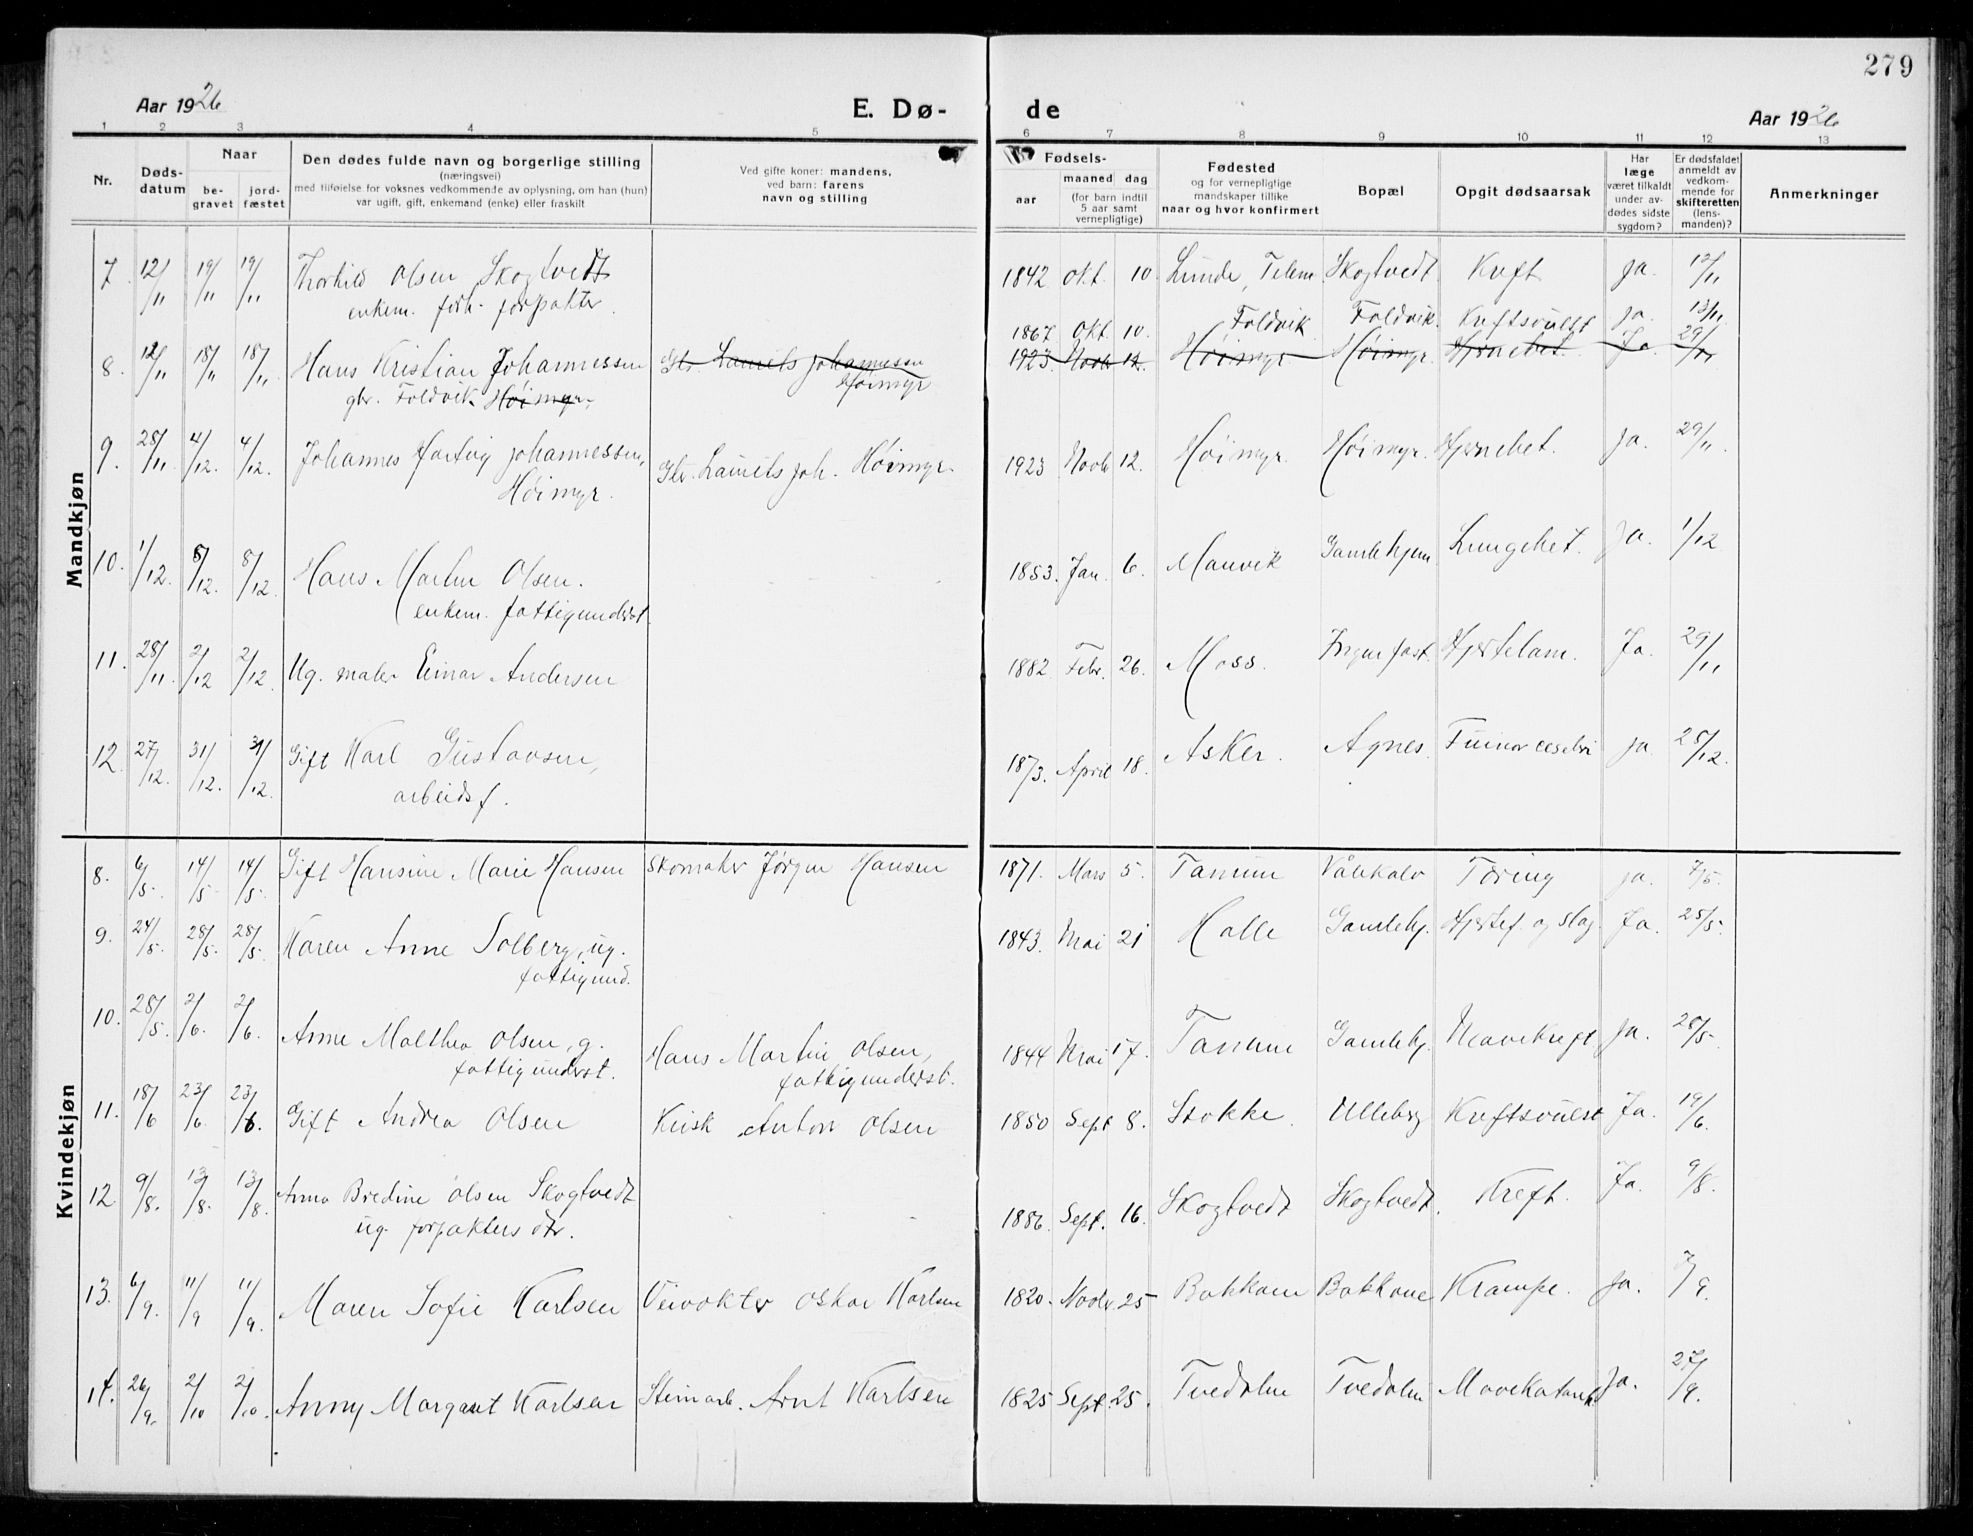 279
Aar 1926
E. Dø-
de
Aar 1926
1 2 3 4 5 6 7 8 9 10 11 12 13
Nr.
Døds-
datum
Naar
be-
gravet
jord-
fæstet
Den dødes fulde navn og borgerlige stilling
(næringsvei)
med tilføielse for voksnes vedkommende av oplysning, om han (hun)
var ugift, gift, enkemand (enke) eller fraskilt
Ved gifte koner: mandens,
ved barn: farens
navn og stilling
Fødsels-
aar
maaned dag
(for barn indtil
5 aar samt
vernepligtige)
Fødested
og for vernepligtige
mandskaper tillike
naar og hvor konfirmert
Bopæl
Opgit dødsaarsak
Har
læge
været tilkaldt
under av-
dødes sidste
sygdom?
Er dødsfaldet
anmeldt av
vedkom-
mende for
skifteretten
(lens-
manden)?
Anmerkninger
Mandkjøn
7 12/11 19/11 19/11 Thorkild Olsen Skogtvedt 1842 Okt. 10. Lunde, Telem. Skogtvedt Kreft ja. 12/11
enkem. forh. forpakter.
1867 Okt. 10. Foldvik Foldvik. Kreftsvulst ja. 13/11
8. 12/11 18/11 18/11 Hans Kristian Johannessen Gbr. Laurits Johannessen 1923 Novbr 12. Høimyr Høimyr. Hjernebet. Ja. 29/11
gbr. Foldvik Høimyr. Høimyr
9. 28/11 4/12. 4/12. Johannes Hartvig Johannessen, Gbr. Laurits Joh. Høimyr. 1923 Novb 12. Høimyr. Høimyr. Hjernebet. Ja. 29/11
Høimyr.
10. 1/12. 8/12. 8/12. Hans Martin Olsen. 1853. Jan. 6. Manvik Gamlehjem Lungebet. Ja. 1/12
enkem. fattigunderst.
11. 28/11. 2/12 2/12. Ug. maler Einar Andersen 1882 Febr. 26. Moss. Ingen fast. Hjertelam. Ja. 29/11
12. 27/12. 31/12. 31/12. Gift Karl Gustavsen, 1873. April 18. Asker. Agnes. ja. 28/12.
arbeidsf.
Kvindekjøn
8. 6/5. 14/5 14/5. Gift Hansine Marie Hansen Skomaker Jørgen Hansen 1871. Mars 5. Tanum Vålekalv Tæring ja. 7/5.
9. 24/5. 28/5. 28/5. Karen Anne Solberg, ug. 1843. Mai 21 Halle Gamlehj. Hjertef. og slag Ja. 25/5.
fattigund.
10. 28/5. 2/6. 2/6. Anne Malthea Olsen, g. Hans Martin Olsen, 1844 Mai 17. Tanum Gamlehj. Mavekreft Ja. 28/5.
fattigunderst. fattigunderst.
11. 18/6 23/6. 23/6. Gift Andrea Olsen Kusk Anton Olsen 1850 Sept 8. Stokke. Ulleberg Kreftsvulst Ja. 19/6.
12 9/8. 13/8. 13/8. Anna Bredine Olsen Skogtvedt 1886. Sept. 16. Skogtvedt Skogtvedt. Kreft. Ja. 9/8.
ug. forpakters dtr.
13. 6/9. 11/9 11/9. Maren Sofie Karlsen Veivokter Oskar Karlsen 1820. Novbr. 25 Bakkane Bakkane Krampe. Ja. 7/9.
14. 26/9. 2/10 2/10. Anny Margaret Karlsen Stenarb. Arnt Karlsen 1825 Sept. 25. Tvedalen Tvedalen Mavekatarrh Ja. 27/9.